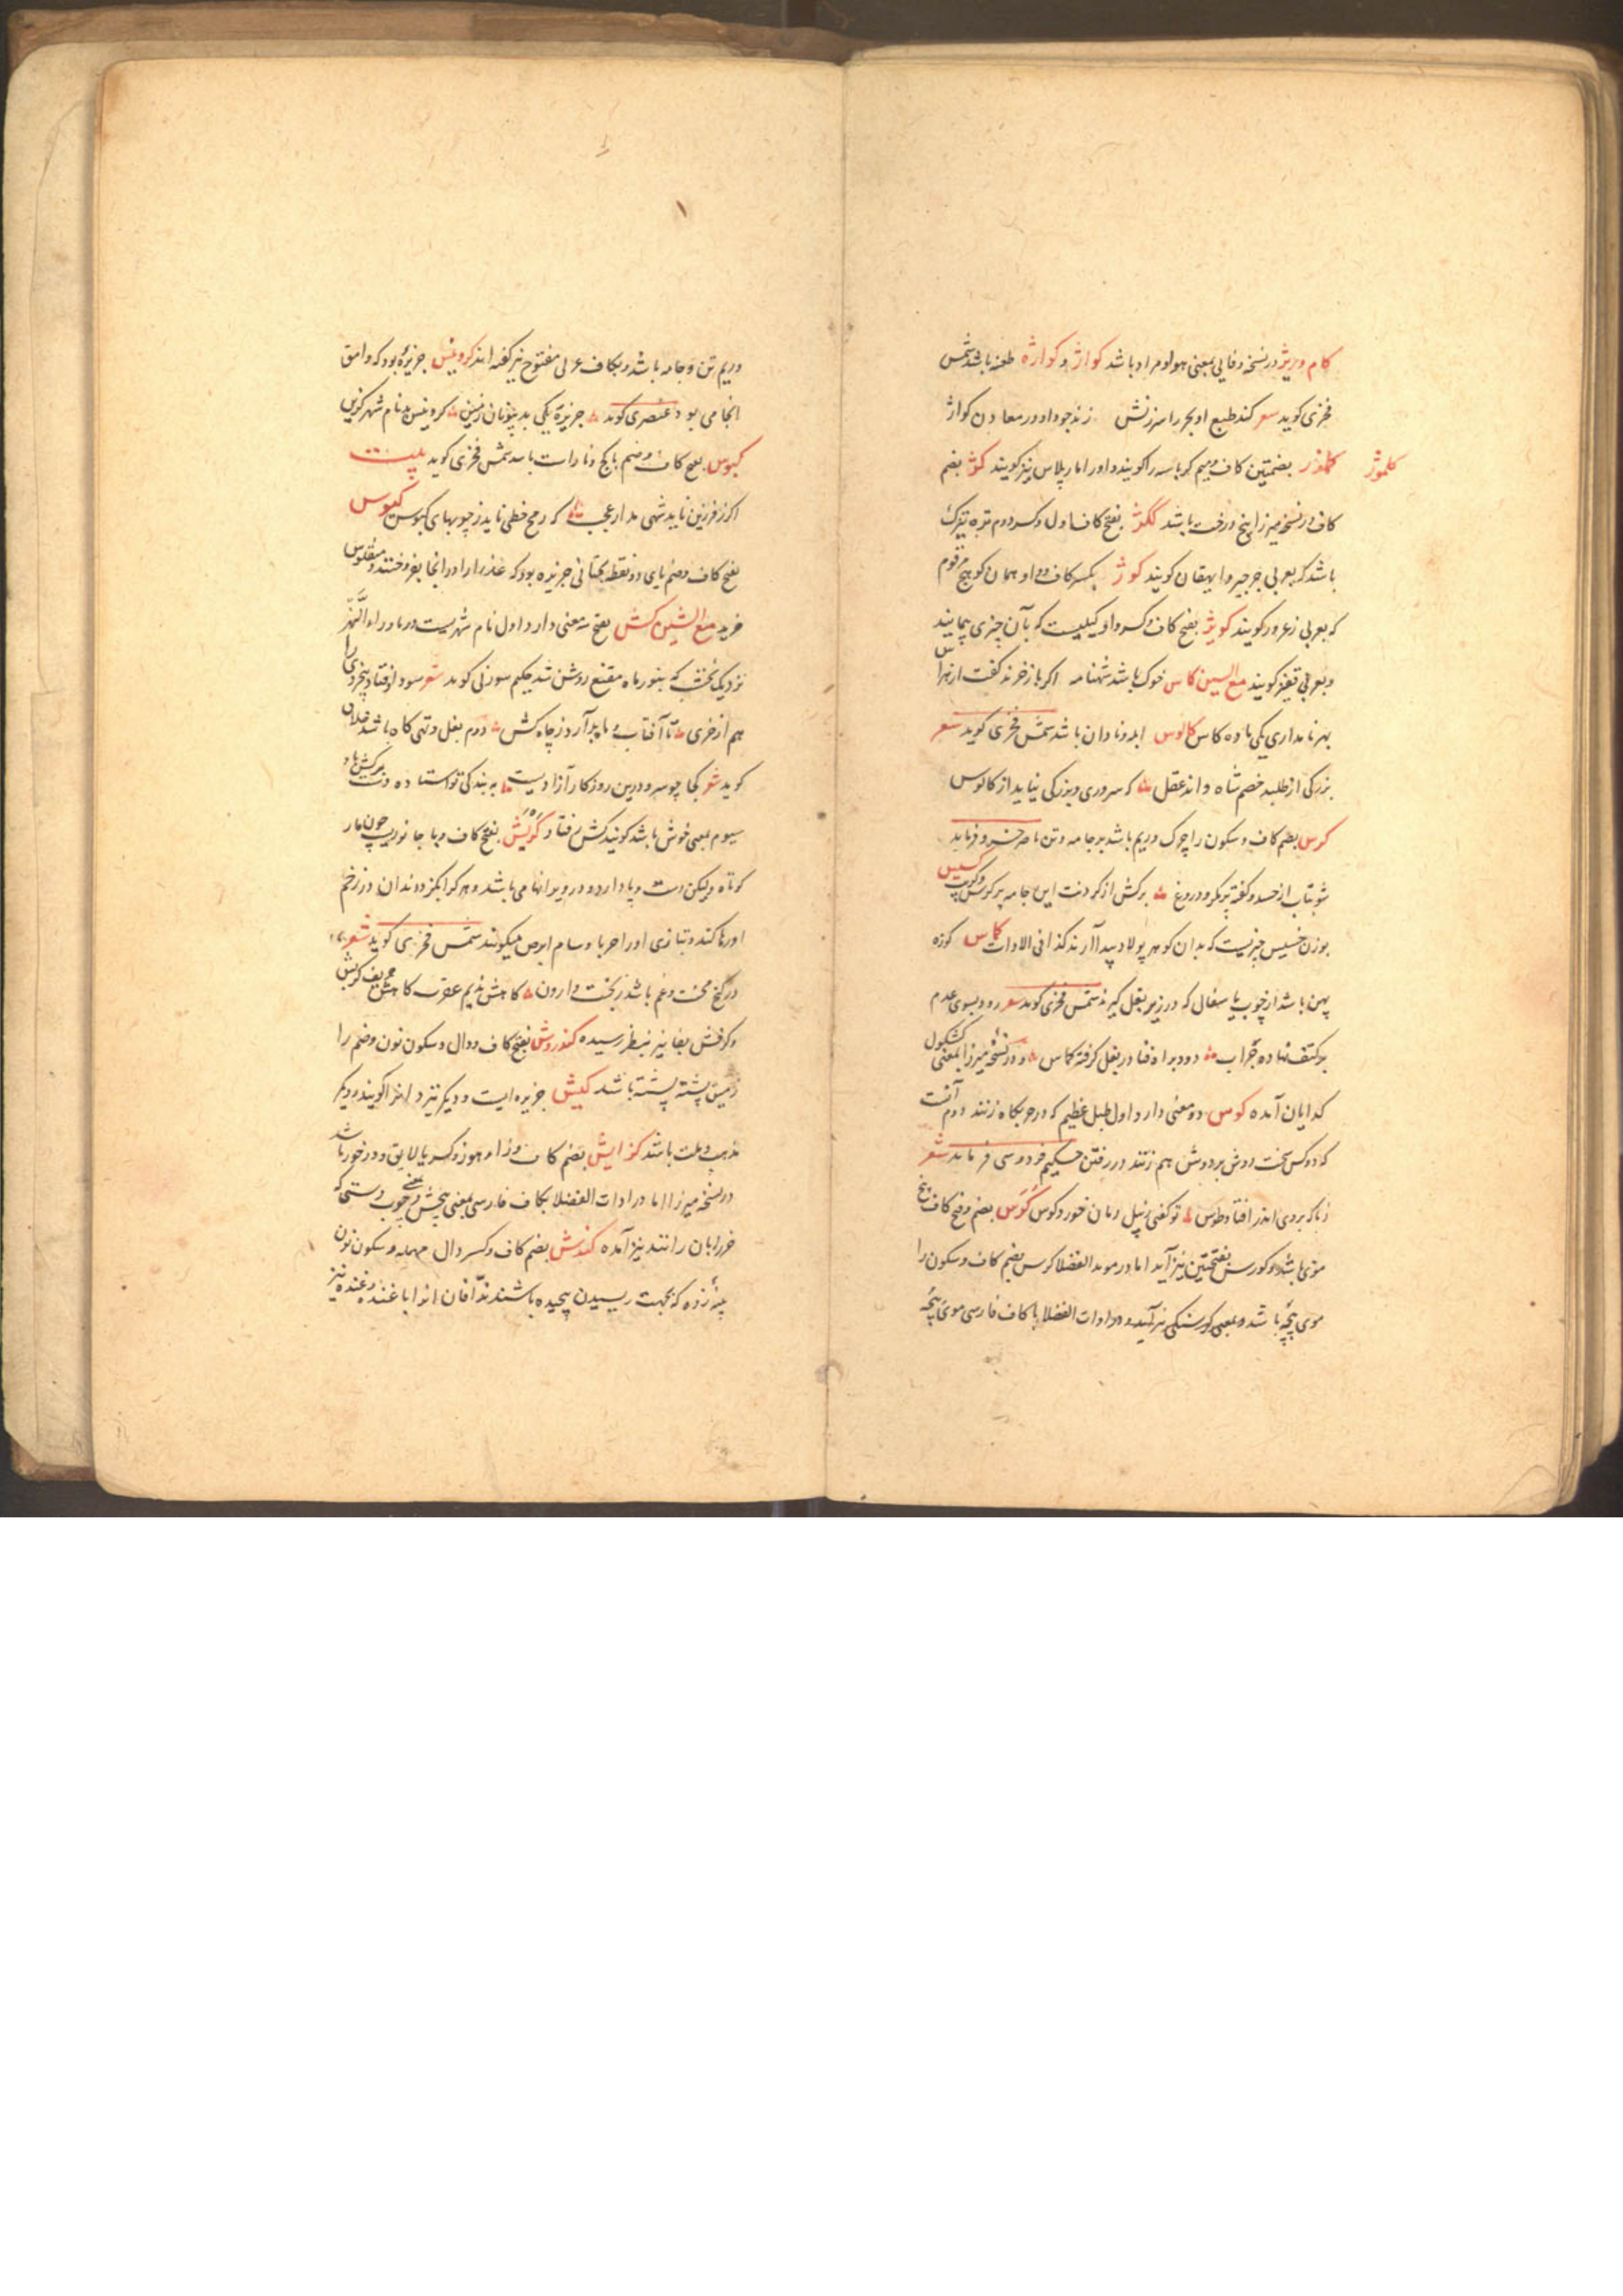 کام و ریژ در نسخه وفایی بمعنی هوا و مراد باشد کواژ و کواژه طعنه باشد شمس
فخری کوید شعر کند طبع او بحر را سرزنش زند جود او در معادن کواژ
کلموژ
بضمتین کاف و میم کرباسه را کویند و او را مارپلاس نیز کویند کوژ بضم
کاف در نسخه میرزا بیخ درخت باشد ککژ بفتح کاف اول و کسر دوم تره تیزک
باشد که بعربی جرجیر و ایهقان کویند کوژ بکسر کاف و واو همان کوهیج مرقوم
که بعربی زعرور کویند کویژ بفتح کاف و کسر واو کیلیست که بآن چیزی پیمایند
و بعربی قفیز کویند مع السین کاس خوک باشد شهنامه
بهر نامداری یکی باده کاس کالوس ابله و نادان باشد شمس فخری کوید شعر
بزرکی از طلبد خصم شاه داند عقل که سروری و بزرکی نیاید از کالوس
کرس بضم کاف و سکون را چرک و ریم باشد بر جامه و تن ناصر خسرو فرماید
شو بتاب از حسد و کفته پر مکر و دروغ برکش از کردنت این جامه پر کرس و کریس
بوزن خسیس چیزیست که بدان کوهر پولاد پیدا آرند کذا فی الادات کماس کوزه
پهن باشد از چوب یا سفالی که در زیر بغل کیرند شمس فخری کوید شعر رود بسوی عدم
بر کتف نهاده جراب دود براه فنا در بغل کرفته کماس و در نسخه میرزا بمعنی کشکول
کدایان آمده کوس دو معنی دارد اول طبل عظیم که در حربکاه زنند دوم آنست
که دو کس سخت دوش بر دوش هم زنند در رفتن حکیم فردوسی فرماید شعر
زناکه بروی اندر افتاد طوس تو کفتی ز پیل دمان خورد کوس کوس بضم و فتح کاف پیچ
موی باشد و کورس بفتحتین نیز آید اما در موید الفضلا کرس بضم کاف و سکون را
موی پیچه باشد و بمعنی کرسنکی نیز آمیده و در ادات الفضلا با کاف فارسی موی پیچه
و ریم تن و جامه باشد و بکاف عربی مفتوح نیز کفته اند کرونیس جزیره بود که وامق
آنجا می بود عنصری کوید جزیره یکی بد بیونان زمین کرونیس بد نام شهر کزین
کبوس بفتح کاف و ضم با کج و ناراست باشد شمس فخری کوید بیت
اکر ز فرزین ناید شهی مدار عجب که رمح خطی ناید ز چوبهای کبوس کیوس
بفتح کاف و ضم یای دو نقطه تحتانی جزیره بود که عذرا را در آنجا بفروختند و منقلوس
خرید مع الشین کش بفتح سه معنی دارد اول نام شهریست در ماوراء النهر
نزدیک نخشب که بنور ماه مقنع روشن شد حکیم سوزنی کوید شعر
هم از خری تا آفتاب و ماه برآرد ز چاه کش دوم بغل و تهی کاه باشد خلاق
کوید شعر کجا چو سرو درین روزکار آزادیست به بندکی تو استاده دست
سیوم بمعنی خوش باشد کویند کش رفتار کرپش بفتح کاف و با جانوریست چون مار
کوتاه ولیکن دست و پا دارد و در ویرانها می باشد و هر که را بکزد دندان در زخم
او رها کند و بتازی او را حربا و سام ابرص میکویند شمس فخری کوید شعر
در کنج محنت و غم باشد ز بخت وارون کاهش ندیم عقرب کاهش حریف کربش
و کرفش بفا نیز بنظر رسیده کندروش بفتح کاف و دال و سکون نون و ضم را
زمین پشته پشته باشد کیش جزیره ایست و دیکر تیردانرا کویند و دیکر
مذهب و ملت باشد کزایش بضم کاف و زاء هوز و کسر یا لایق و درخور باشد
در نسخه میرزا اما در ادات الفضلا بکاف فارسی بمعنی چوب دستی که
خر را بان رانند نیز آمده کندش بضم کاف و کسر دال مهمله و سکون نون
پنبه زده که بجهت ریسیدن پیچیده باشند ندافان انرا باغنده و غنده نیز